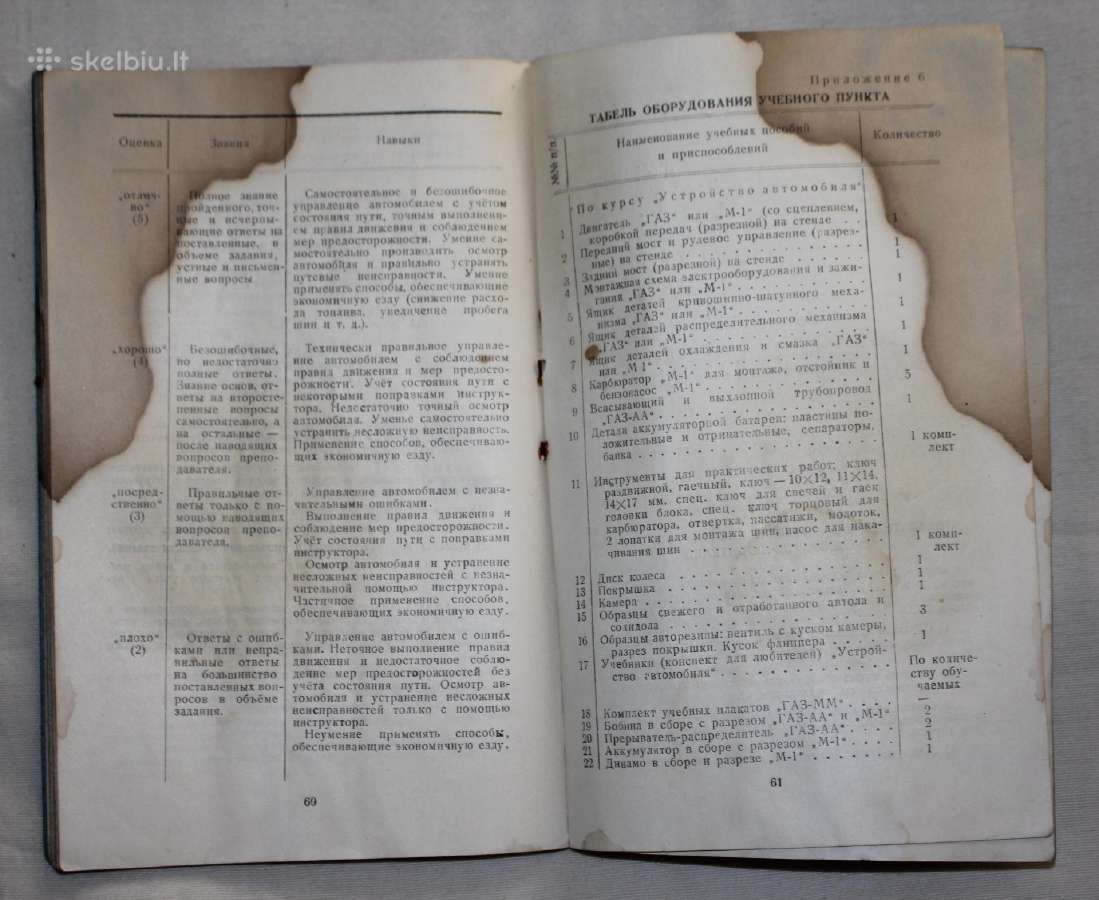 skelbiu.lt
Оценка
Знания
Навыки
„отлич-
но“
(5)
Полное знание
пройденного, точ-
ные и исчерпы-
вающие ответы на
поставленные, в
объеме задания,
устные и письмен-
ные вопросы
Самостоятельное и безошибочное
управление автомобилем с учётом
состояния пути, точным выполнени-
ем правил движения и соблюдением
мер предосторожности. Умение са-
мостоятельно производить осмотр
автомобиля и правильно устранять
путевые неисправности. Умение
применять способы, обеспечивающие
экономичную езду (снижение расхо-
да топлива, увеличение пробега
шин и т. д.).
„хорошо“
(4)
Безошибочные,
но недостаточно
полные ответы.
Знание основ, от-
веты на второсте-
пенные вопросы
самостоятельно, а
на остальные —
после наводящих
вопросов препо-
давателя.
Технически правильное управле-
ние автомобилем с соблюдением
правил движения и мер предосто-
рожности. Учёт состояния пути с
некоторыми поправками инструк-
тора. Недостаточно точный осмотр
автомобиля. Умение самостоятельно
устранить несложную неисправность.
Применение способов, обеспечиваю-
щих экономичную езду.
„посред-
ственно“
(3)
Правильные от-
веты только с по-
мощью наводящих
вопросов препо-
давателя.
Управление автомобилем с незна-
чительными ошибками.
Выполнение правил движения и
соблюдение мер предосторожности.
Учёт состояния пути с поправками
инструктора.
Осмотр автомобиля и устранение
несложных неисправностей с незна-
чительной помощью инструктора.
Частичное применение способов,
обеспечивающих экономичную езду.
„плохо“
(2)
Ответы с ошиб-
ками или непра-
вильные ответы
на большинство
поставленных воп-
росов в объёме
задания.
Управление автомобилем с ошиб-
ками. Неточное выполнение правил
движения и недостаточное соблю-
дение мер предосторожностей без
учёта состояния пути. Осмотр ав-
томобиля и устранение несложных
неисправностей только с помощью
инструктора.
Неумение применять способы,
обеспечивающие экономичную езду.
60
Приложение 6
ТАБЕЛЬ ОБОРУДОВАНИЯ УЧЕБНОГО ПУНКТА
№№ п/п.
Наименование учебных пособий
и приспособлений
Количество
По курсу „Устройство автомобиля“
1 Двигатель „ГАЗ“ или „М-1“ (со сцеплением,
коробкой передач (разрезной) на стенде . . 1
2 Передний мост и рулевое управление (разрез-
ные) на стенде . . . . . . . . . . 1
3 Задний мост (разрезной) на стенде . . . . . 1
4 Монтажная схема электрооборудования и зажи-
гания „ГАЗ“ или „М-1“ . . . . . . . . 1
5 Ящик деталей кривошипно-шатунного меха-
низма „ГАЗ“ или „М-1“ . . . . . . . . 1
6 Ящик деталей распределительного механизма
„ГАЗ“ или „М-1“ . . . . . . . . . 1
7 Ящик деталей охлаждения и смазка „ГАЗ“
или „М 1“ . . . . . . . . . . . 1
8 Карбюратор „М-1“ для монтажа, отстойник и
бензонасос „М-1“ . . . . . . . . . 5
9 Всасывающий и выхлопной трубопровод
„ГАЗ-АА“ . . . . . . . . . . . 1
10 Детали аккумуляторной батареи: пластины по-
ложительные и отрицательные, сепараторы,
банка . . . . . . . . . . . . 1 комп-
лект
11 Инструменты для практических работ: ключ
раздвижной, гаечный, ключ — 10×12, 11×14,
14×17 мм, спец. ключ для свечей и гаек
головки блока, спец. ключ торцовый для
карбюратора, отвертка, пассатижи, молоток,
2 лопатки для монтажа шин, насос для нака-
чивания шин . . . . . . . . . . 1 комп-
лект
12 Диск колеса . . . . . . . . . . 1
13 Покрышка . . . . . . . . . . . 1
14 Камера . . . . . . . . . . . . 1
15 Образцы свежего и отработанного автола и
солидола . . . . . . . . . . . 3
16 Образцы авторезины: вентиль с куском камеры,
разрез покрышки. Кусок флиппера . . . . 1
17 Учебники (конспект для любителей) „Устрой-
ство автомобиля“ . . . . . . . . . По количе-
ству обу-
чаемых
18 Комплект учебных плакатов „ГАЗ-ММ“ . . . . —
19 Бобина в сборе с разрезом „ГАЗ-АА“ и „М-1“ 2
20 Прерыватель-распределитель „ГАЗ-АА“ . . . . 2
21 Аккумулятор в сборе с разрезом „М-1“ . . . . 1
22 Динамо в сборе и разрезе „М-1“ . . . . . . 1
61